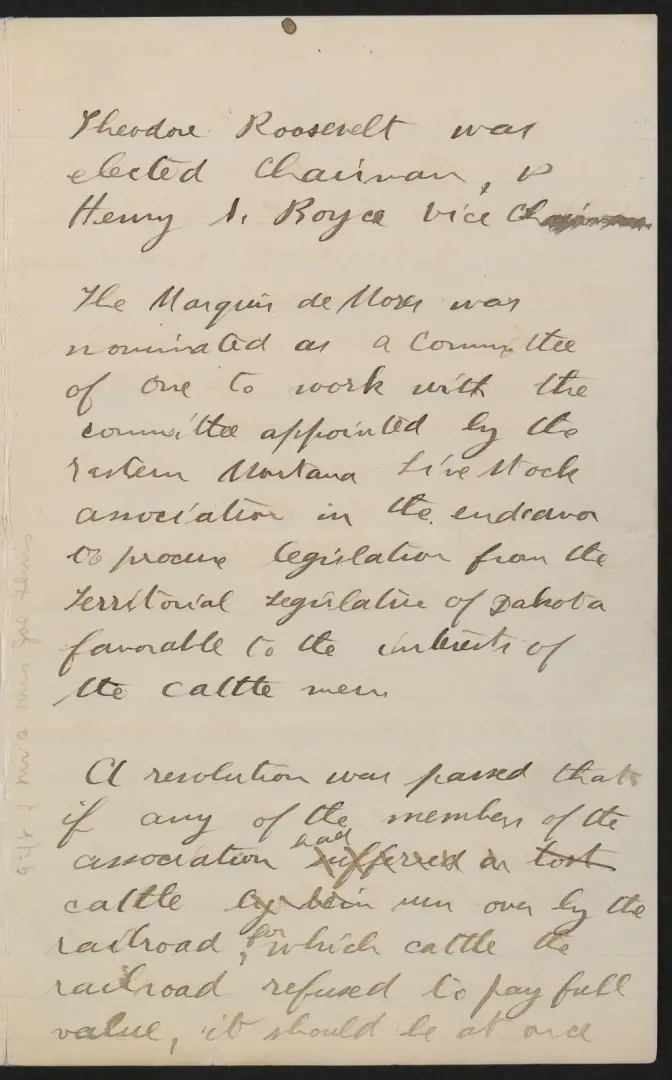 Theodore Roosevelt was
elected Chairman, &
Henry S. Royce Vice Chairman.
The Marquis de Mores was
nominated as a Committee
of one to work with the
committee appointed by the
Eastern Montana Live Stock
association in the endeavor
to procure legislation from the
Territorial Legislature of Dakota
favorable to the interests of
the cattle men
A resolution was passed that
if any of the members of the
association had suffered or lost
cattle by bein run over by the
railroad, for which cattle the
railroad refused to pay full
value, it should be at once
gift of Mr & Mrs Joe